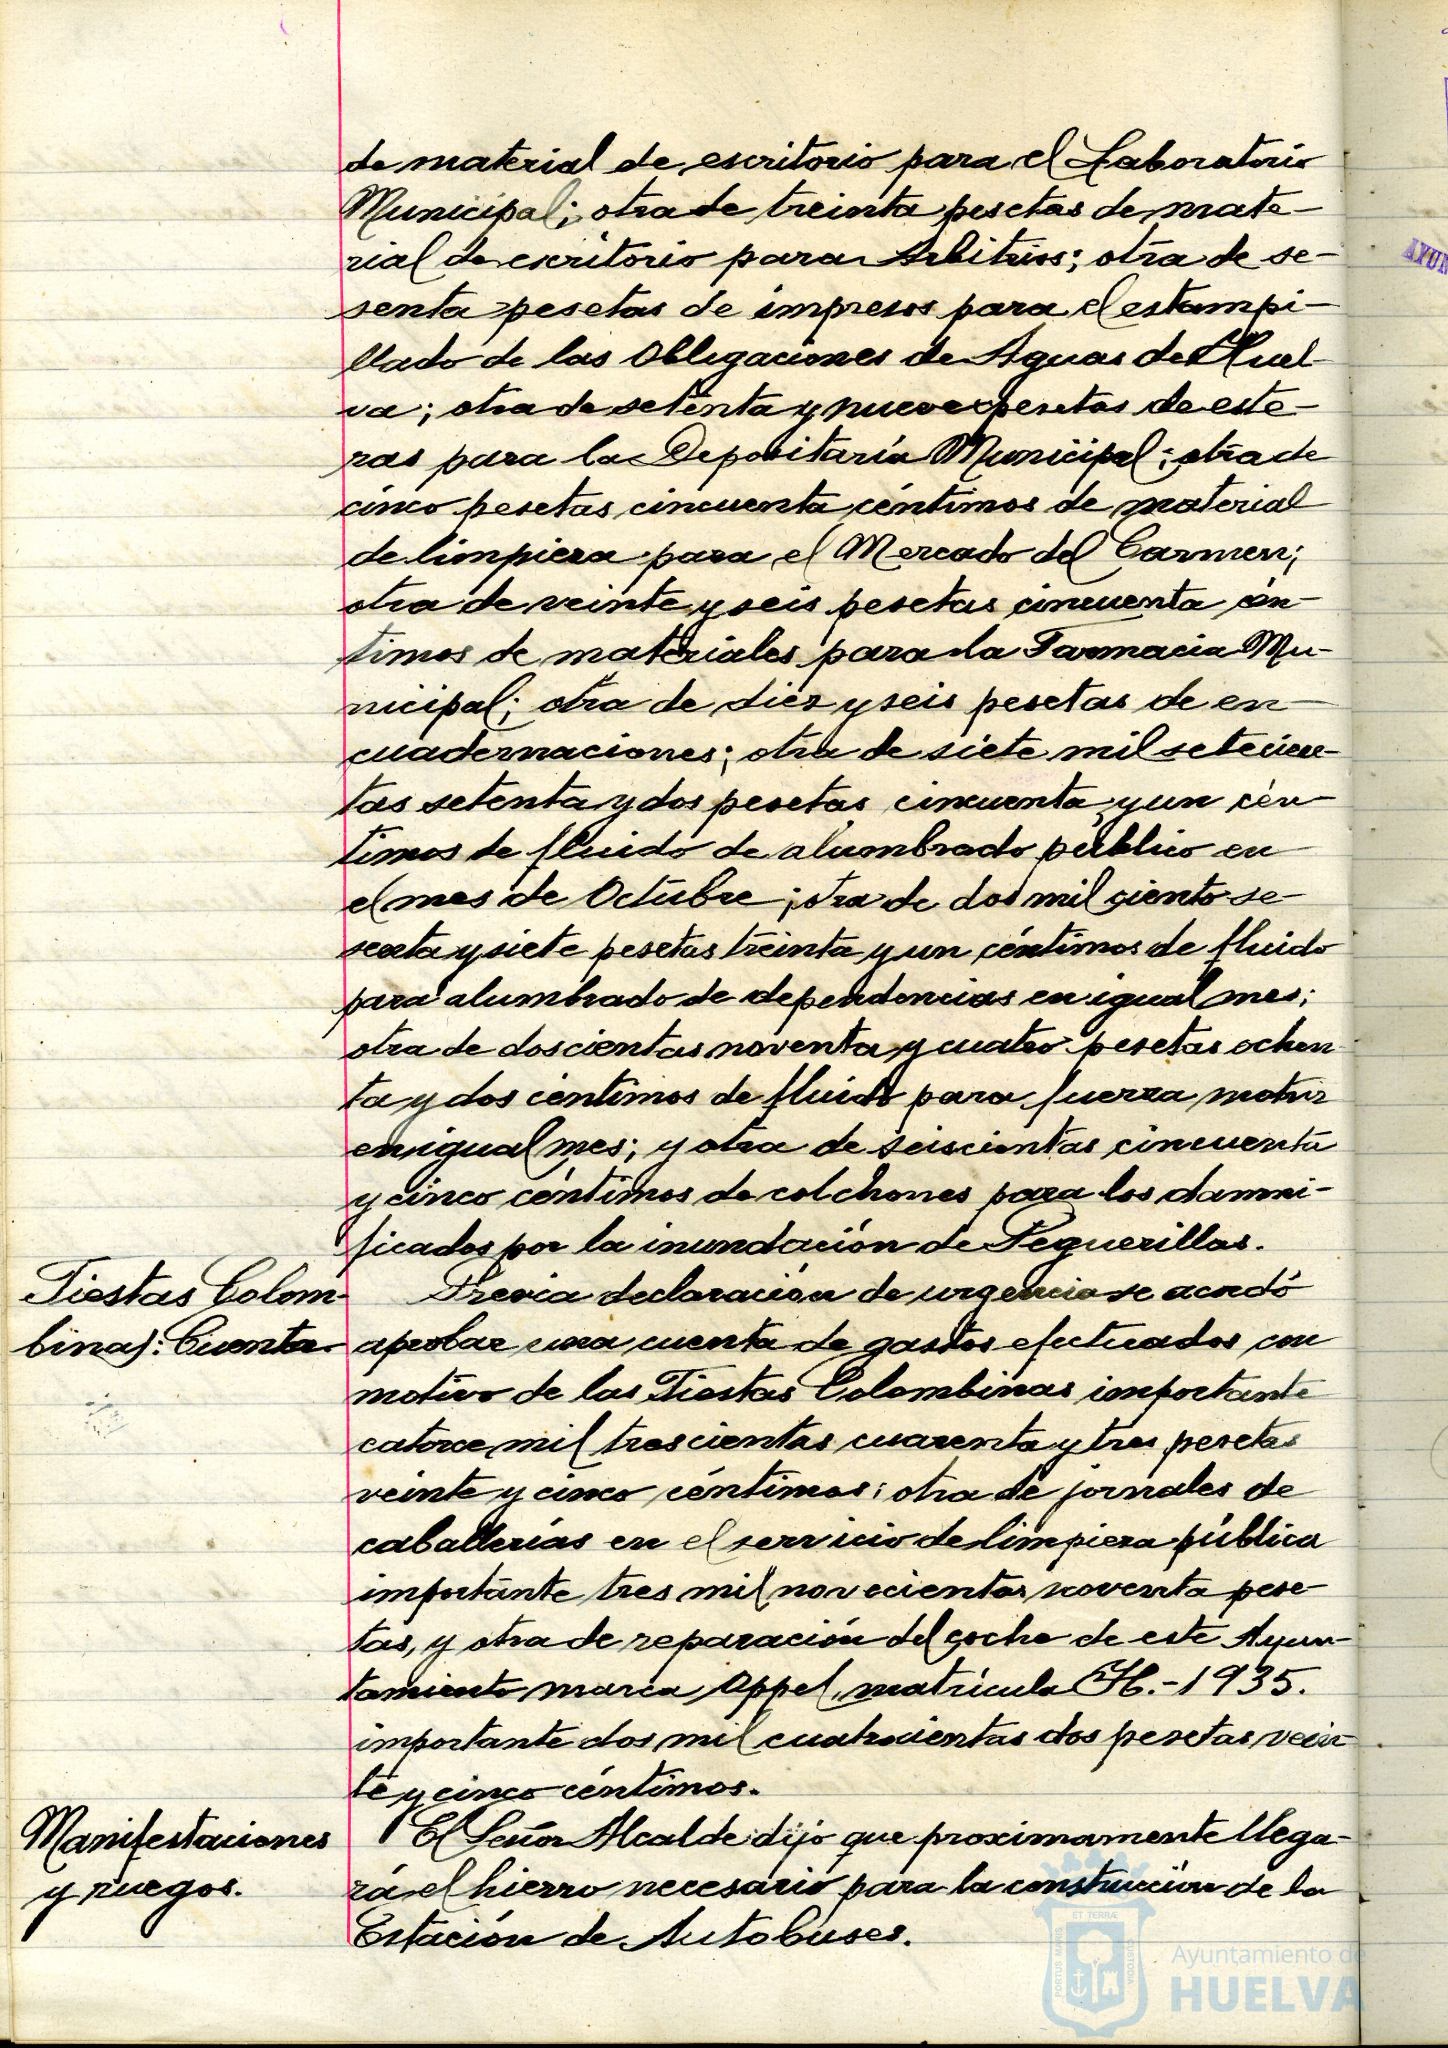 de material de escritorio para el Laboratorio
Municipal; otra de treinta pesetas de mate-
rial de escritorio para Arbitrios; otra de se-
senta pesetas de impresos para el estampi-
llado de las Obligaciones de Aguas de Huel-
va; otra de setenta y nueve pesetas de este-
ras para la Depositaría Municipal; otra de
cinco pesetas cincuenta céntimos de material
de limpieza para el Mercado del Carmen;
otra de veinte y seis pesetas cincuenta cén-
timos de materiales para la Farmacia Mu-
nicipal; otra de diez y seis pesetas de en-
cuadernaciones; otra de siete mil setecien-
tas setenta y dos pesetas cincuenta y un cén-
timos de fluido de alumbrado público en
el mes de Octubre; otra de dos mil ciento se-
senta y siete pesetas treinta y un céntimos de fluido
para alumbrado de dependencias en igual mes;
otra de doscientas noventa y cuatro pesetas ochen
ta y dos céntimos de fluido para fuerza motriz
en igual mes; y otra de seiscientas cincuenta
y cinco céntimos de colchones para los damni-
ficados por la inundación de Peguerillas.
Fiestas Colom-
binas: Cuenta.
Previa declaración de urgencia se acordó
aprobar una cuenta de gastos efectuados con
motivo de las Fiestas Colombinas importante
catorce mil trescientas cuarenta y tres pesetas
veinte y cinco céntimos; otra de jornales de
caballerías en el servicio de limpieza pública
importante tres mil novecientas noventa pese-
tas, y otra de reparación del coche de este Ayun-
tamiento marca Oppel, matrícula H.-1935.
importante dos mil cuatrocientas dos pesetas vein
te y cinco céntimos.
Manifestaciones
y ruegos.
El Señor Alcalde dijo que proximamente llega-
rá el hierro necesario para la construcción de la
Estación de Autobuses.
PORTUS MARIS
ET TERRÆ
CUSTODIA
Ayuntamiento de
HUELVA